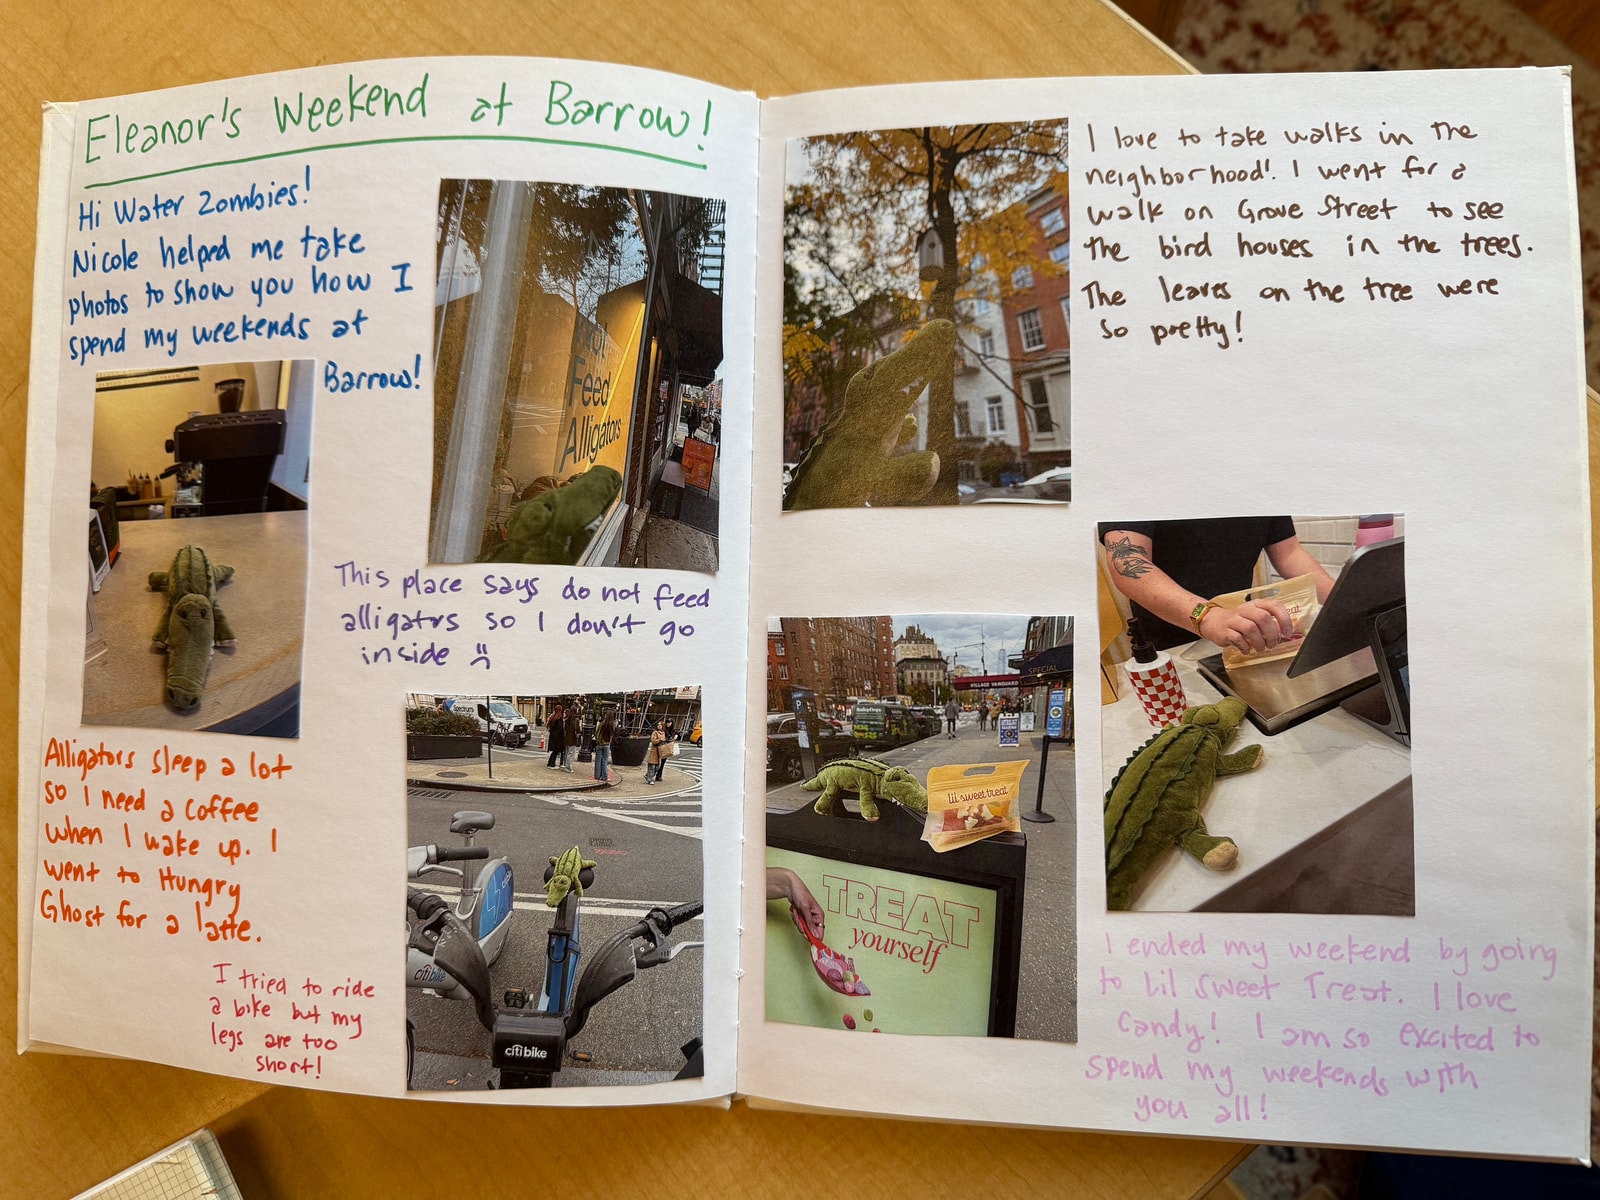 Eleanor's Weekend at Barrow!
Hi Water Zombies!
Nicole helped me take
photos to show you how I
spend my weekends at
Barrow!
Not
Feed
Alligators
This place says do not feed
alligators so I don't go
inside
Alligators sleep a lot
so I need a coffee
when I wake up. I
went to Hungry
Ghost for a latte.
I tried to ride
a bike but my
legs are too
short!
Spectrum
citi bike
citi bike
I love to take walks in the
neighborhood! I went for a
walk on Grove Street to see
the bird houses in the trees.
The leaves on the tree were
so pretty!
VILLAGE VANGUARD
SPECIAL
lil sweet treat
TREAT
yourself
eat
I ended my weekend by going
to Lil Sweet Treat. I love
Candy! I am so excited to
spend my weekends with
you all!